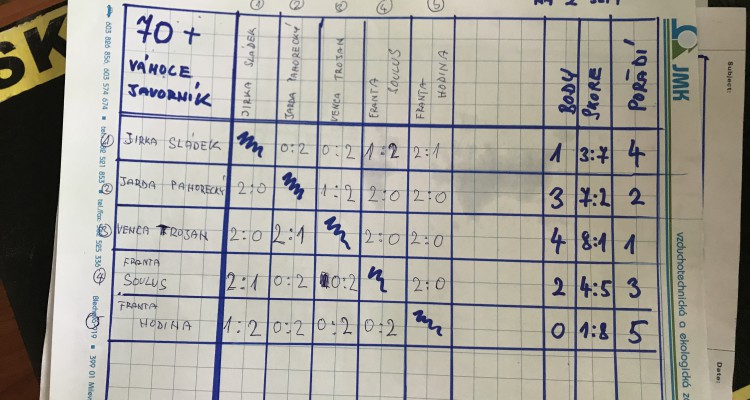 ① ② ③ ④ ⑤
70+
VÁNOCE
JAVORNÍK
JIRKA SLÁDEK
JARDA PAHORECKÝ
VENCA TROJAN
FRANTA SOULUS
FRANTA HODINA
BODY
SKORE
POŘADÍ
① JIRKA SLÁDEK 0:2 0:2 1:2 2:1 1 3:7 4
② JARDA PAHORECKÝ 2:0 1:2 2:0 2:0 3 7:2 2
③ VENCA TROJAN 2:0 2:1 2:0 2:0 4 8:1 1
④ FRANTA SOULUS 2:1 0:2 0:2 2:0 2 4:5 3
⑤ FRANTA HODINA 1:2 0:2 0:2 0:2 0 1:8 5
603 826 856, 603 574 674
JMK
vzduchotechnická a ekologická
Subject:
Date: